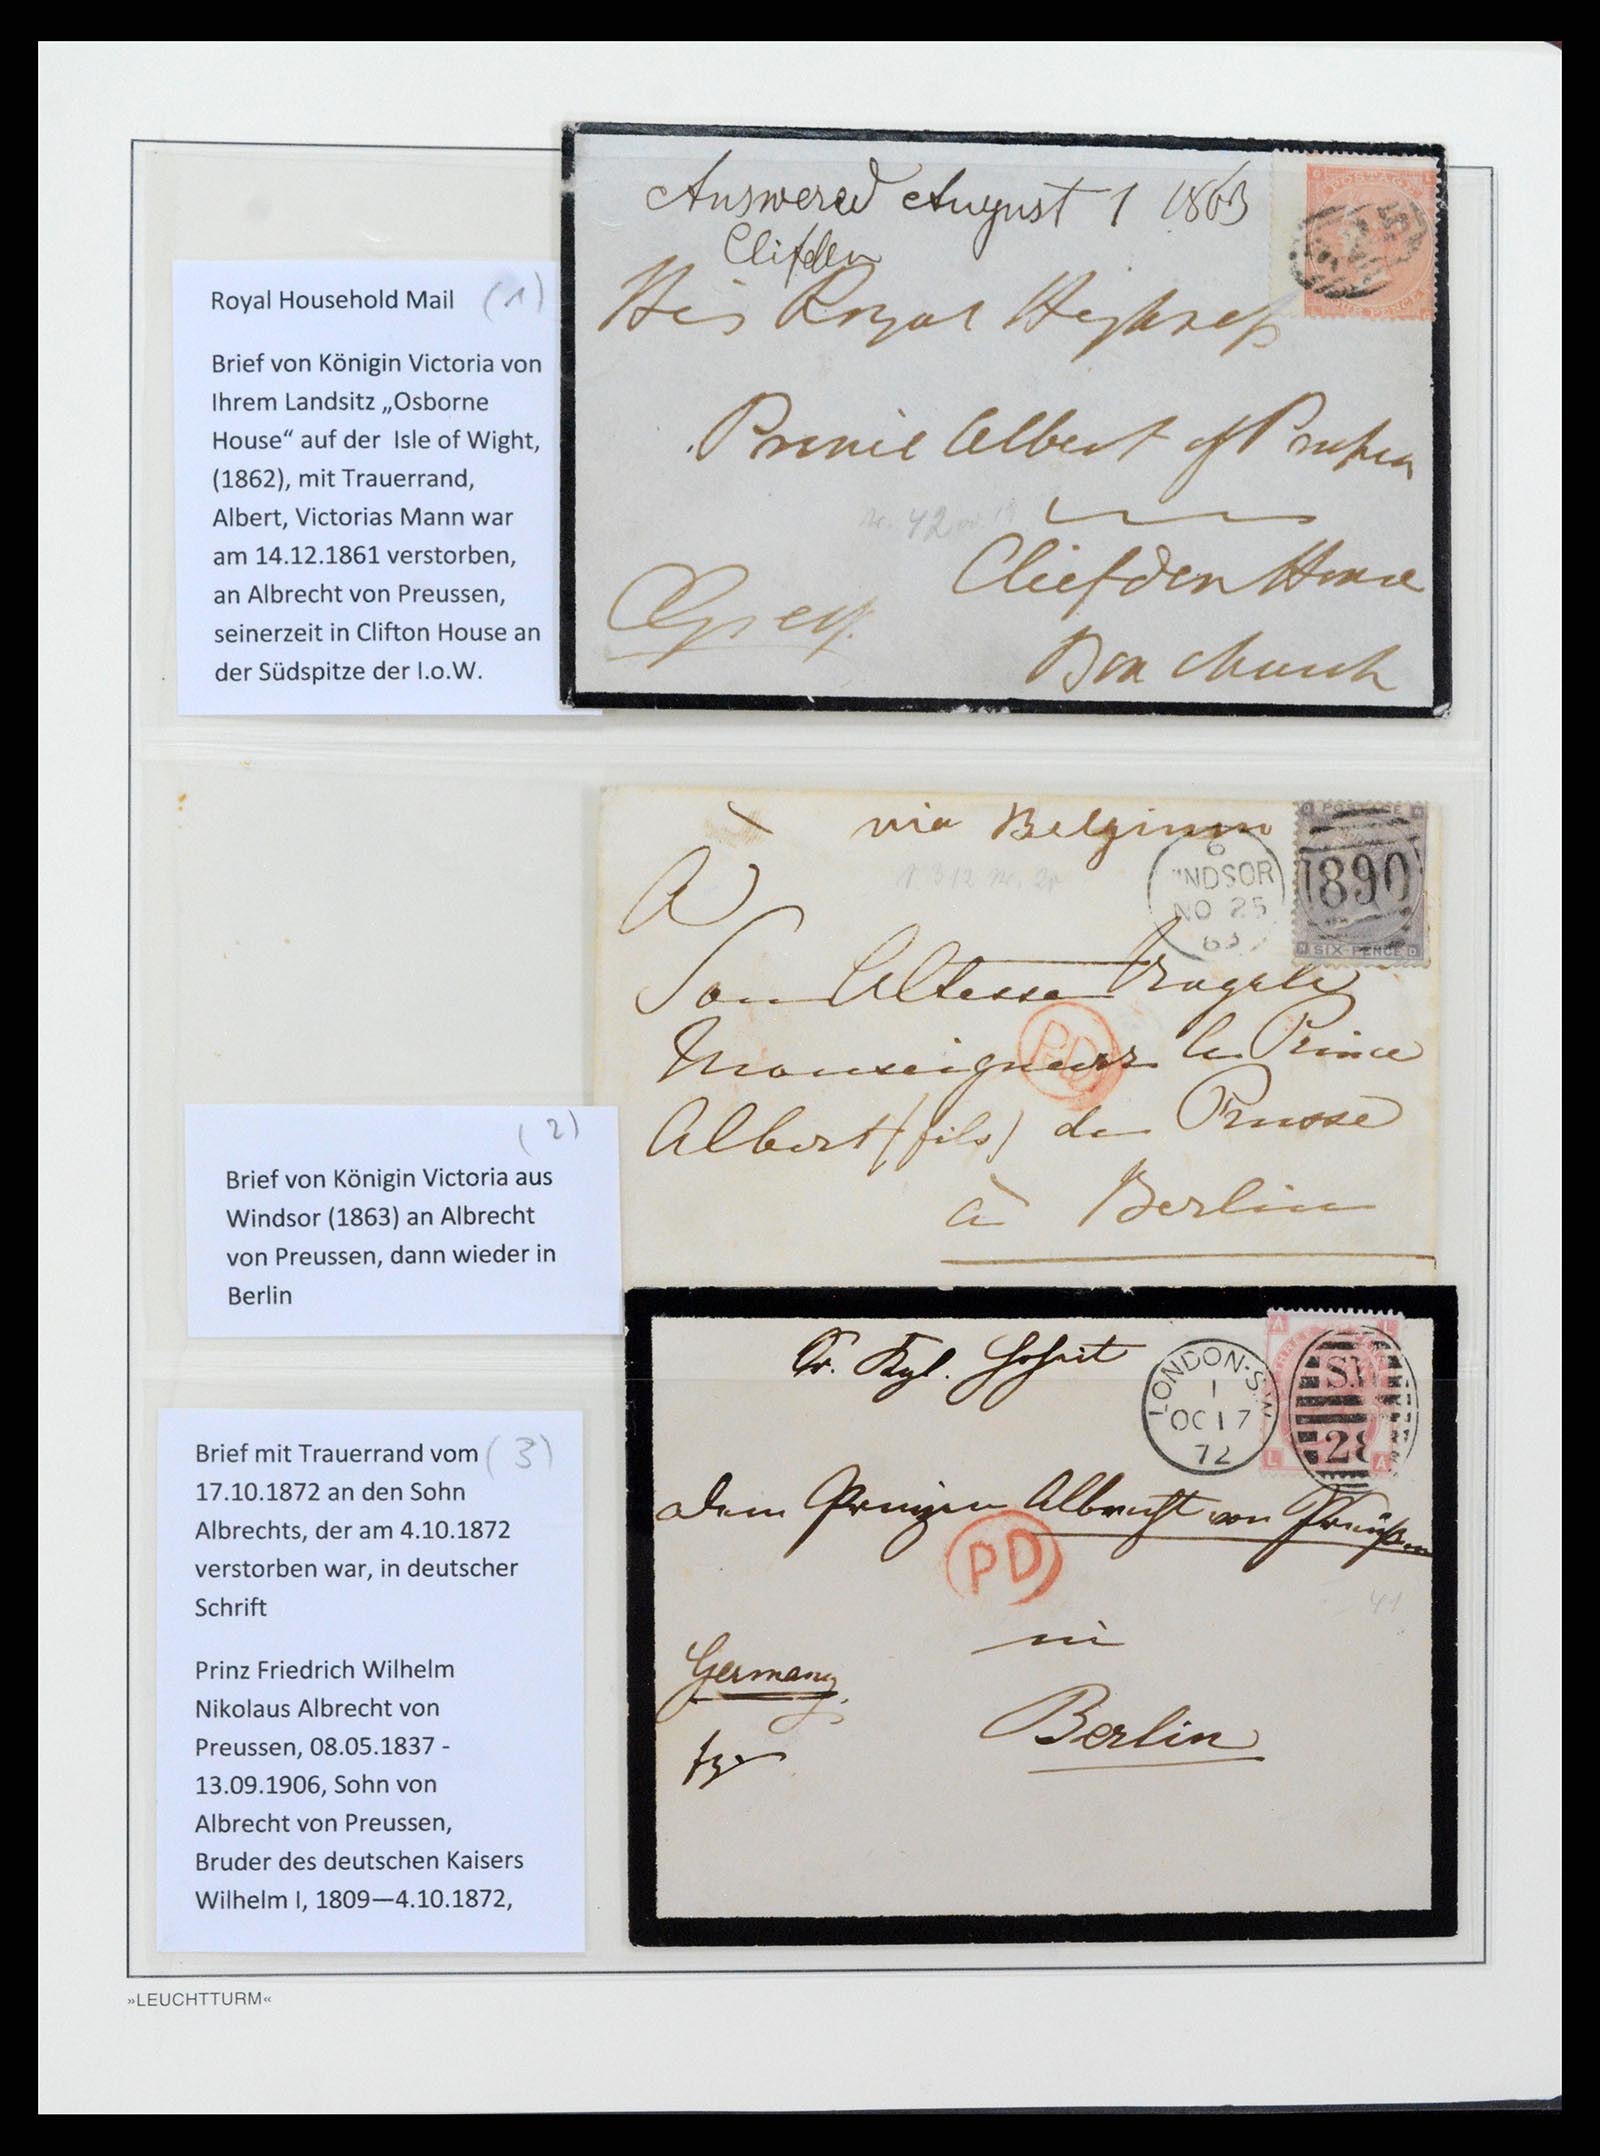 Royal Household Mail (1)
Brief von Königin Victoria von
Ihrem Landsitz „Osborne
House“ auf der Isle of Wight,
(1862), mit Trauerrand,
Albert, Victorias Mann war
am 14.12.1861 verstorben,
an Albrecht von Preussen,
seinerzeit in Clifton House an
der Südspitze der I.o.W.
Answered August 1 1863
Clifden
His Royal Highness
Prince Albert of Prussia
Cliefden House
Bonchurch
POSTAGE
(2)
Brief von Königin Victoria aus
Windsor (1863) an Albrecht
von Preussen, dann wieder in
Berlin
via Belgium
A
Son Altesse Royale
Monseigneur le Prince
Albert (fils) de Prusse
à Berlin
6
INDSOR
NO 25
63
POSTAGE
890
SIX-PENCE
PD
Brief mit Trauerrand vom (3)
17.10.1872 an den Sohn
Albrechts, der am 4.10.1872
verstorben war, in deutscher
Schrift
Prinz Friedrich Wilhelm
Nikolaus Albrecht von
Preussen, 08.05.1837 -
13.09.1906, Sohn von
Albrecht von Preussen,
Bruder des deutschen Kaisers
Wilhelm I, 1809—4.10.1872,
Sr. Kgl. Hoheit
dem Prinzen Albrecht von Preußen
in
Berlin
Germany
LONDON·S.W
1
OC 17
72
A L
THREE
S.W
28
L A
PD
41
»LEUCHTTURM«